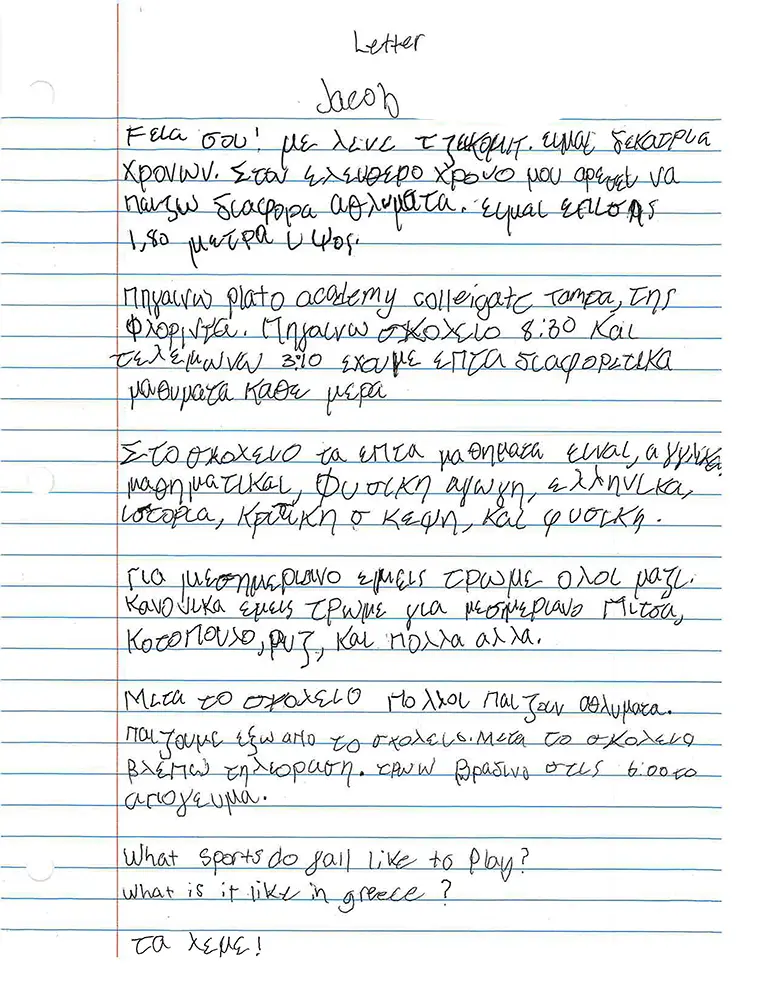 Letter
Jacob
Γεια σου! με λενε τζεκομπ. ειμαι δεκατρια
χρονων. Στον ελευθερο χρονο μου αρεσει να
παιζω διαφορα αθλυματα. ειμαι επισης
1,80 μετρα υψος.
Πηγαινω plato academy colleigate Tampa, της
Φλοριντα. Πηγαινω σκολειο 8:30 και
τελειωνω 3:10 εχουμε επτα διαφορετικα
μαθυματα καθε μερα
Στο σκολειο τα επτα μαθηματα ειναι, αγγλικα
μαθηματικαι, Φυσικη αγωγη, ελληνικα,
ιστορια, κριτικη σκεψη, και φυσικη.
Για μεσημεριανο εμεις τρωμε ολοι μαζι.
κανονικα εμεις τρωμε για μεσμεριανο πιτσα,
κοτοπουλο, ρυζ, και πολλα αλλα.
Μετα το σκολειο πολλοι παιζουν αθλυματα.
παιζουμε εξω απο το σχολειο. Μετα το σκολειο
βλεπω τηλεοραση. τρωω βραδινο στις 6:00 το
απογευμα.
What sports do yall like to play?
what is it like in greece?
τα λεμε!